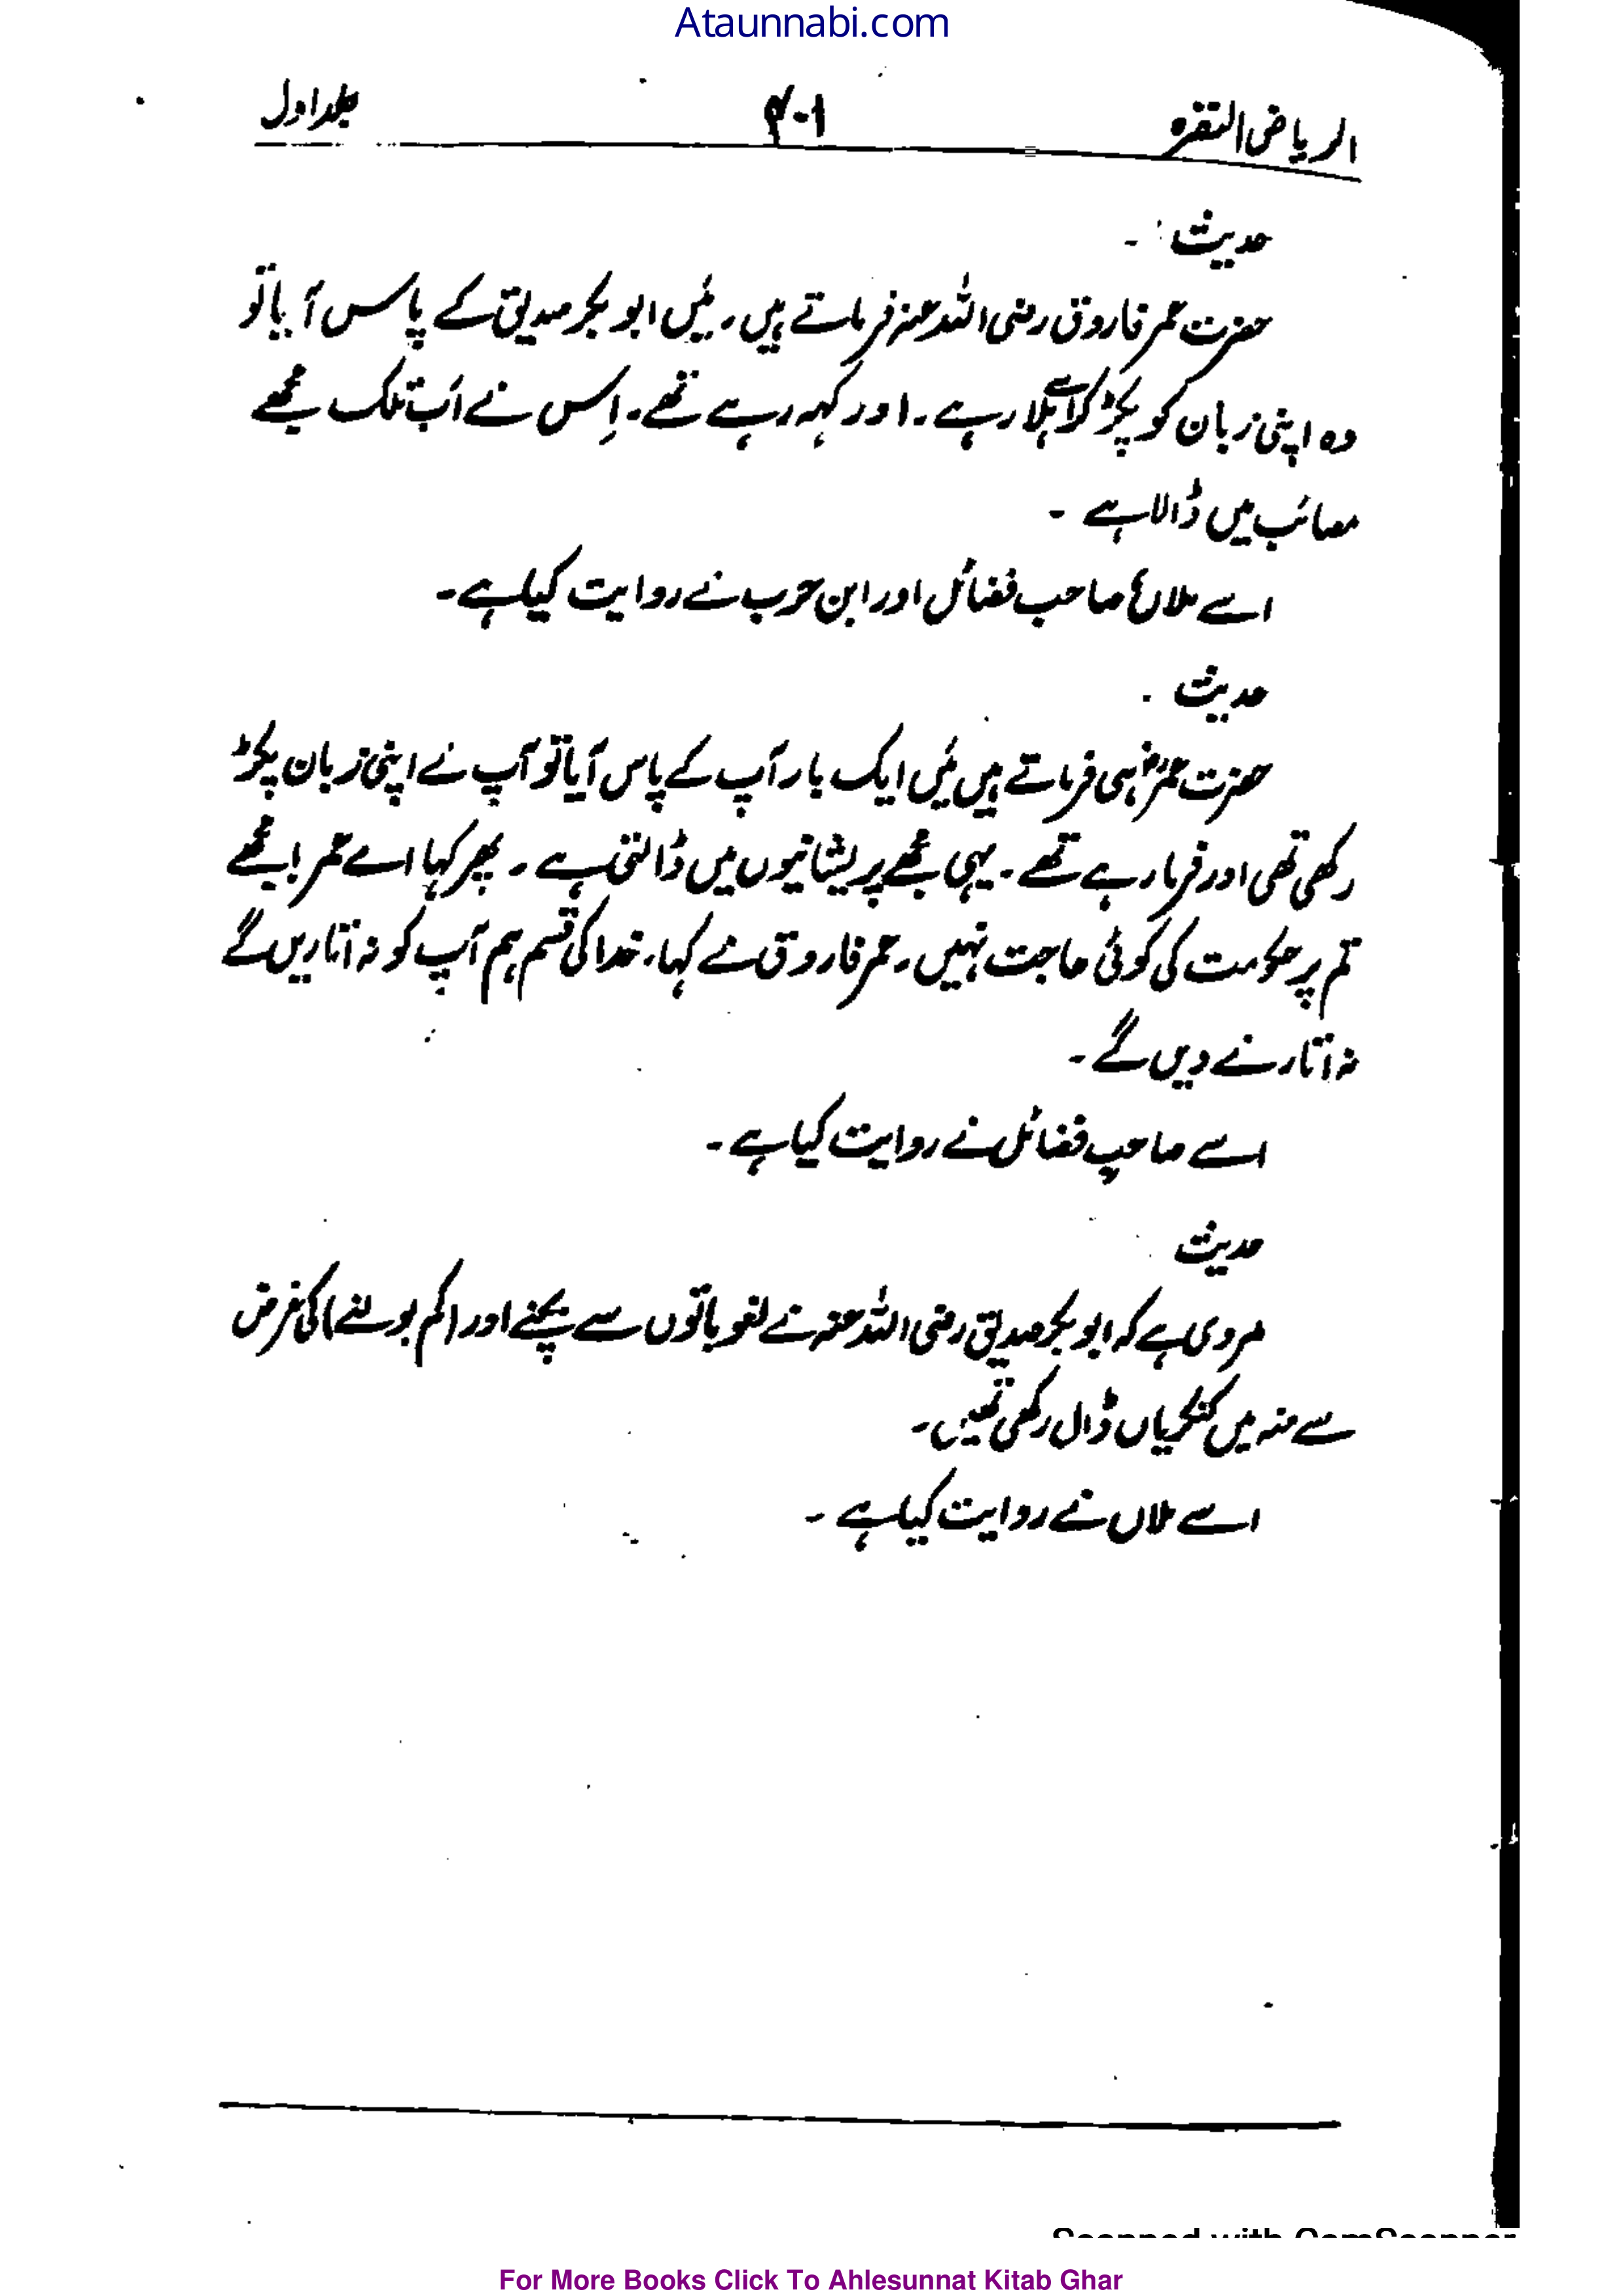 Ataunnabi.com
الریاض النضرہ ۴۰۱ جلد اول
حدیث :-
حضرت عمر فاروق رضی اللہ عنہ فرماتے ہیں۔ مَیں ابوبکر صدیق کے پاس آیا تو
وہ اپنی زبان کو پکڑ کر اسے ہلا رہے۔ اور کہہ رہے تھے۔ اِس نے اَب تلک مجھے
مصائب میں ڈالا ہے۔
اسے ملاں، صاحب فضائل اور ابن حرب نے روایت کیا ہے۔
حدیث .
حضرت عمرؓ ہی فرماتے ہیں مَیں ایک بار آپ کے پاس آیا تو آپ نے اپنی زبان پکڑ
رکھی تھی اور فرما رہے تھے۔ یہی مجھے پریشانیوں میں ڈالتی ہے۔ پھر کہا اے عمر! مجھے
تم پر حکومت کی کوئی حاجت نہیں۔ عمر فاروق نے کہا، خدا کی قسم ہم آپ کو نہ اتاریں گے
نہ اتارنے دیں گے۔
اسے صاحبِ فضائل نے روایت کیا ہے۔
حدیث
مروی ہے کہ ابوبکر صدیق رضی اللہ عنہ نے لغو باتوں سے بچنے اور (کم بولنے) کی غرض
سے منہ میں کنکریاں ڈال رکھی تھیں۔
اسے ملاں نے روایت کیا ہے۔
Scanned with CamScanner
For More Books Click To Ahlesunnat Kitab Ghar